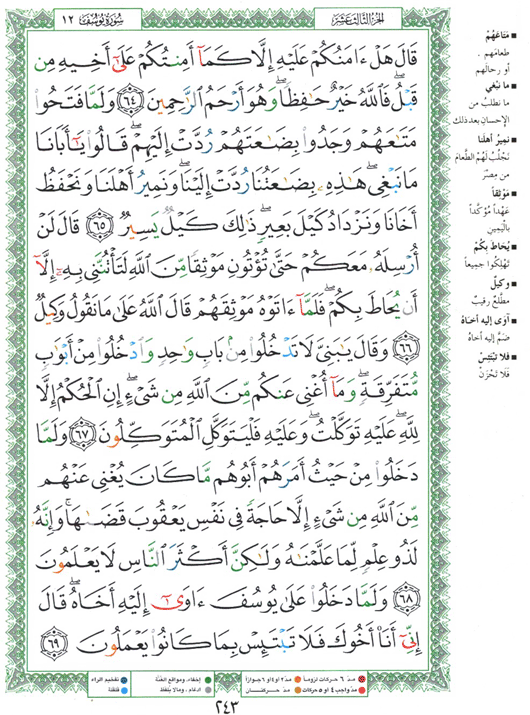 الجزء الثالث عشر
سورة يوسف ١٢
قَالَ هَلْ ءَامَنُكُمْ عَلَيْهِ إِلَّا كَمَآ أَمِنتُكُمْ عَلَىٰٓ أَخِيهِ مِن
قَبْلُ ۖ فَٱللَّهُ خَيْرٌ حَٰفِظًا ۖ وَهُوَ أَرْحَمُ ٱلرَّٰحِمِينَ ٦٤ وَلَمَّا فَتَحُوا۟
مَتَٰعَهُمْ وَجَدُوا۟ بِضَٰعَتَهُمْ رُدَّتْ إِلَيْهِمْ ۖ قَالُوا۟ يَٰٓأَبَانَا
مَا نَبْغِى ۖ هَٰذِهِۦ بِضَٰعَتُنَا رُدَّتْ إِلَيْنَا ۖ وَنَمِيرُ أَهْلَنَا وَنَحْفَظُ
أَخَانَا وَنَزْدَادُ كَيْلَ بَعِيرٍ ۖ ذَٰلِكَ كَيْلٌ يَسِيرٌ ٦٥ قَالَ لَنْ
أُرْسِلَهُۥ مَعَكُمْ حَتَّىٰ تُؤْتُونِ مَوْثِقًا مِّنَ ٱللَّهِ لَتَأْتُنَّنِى بِهِۦٓ إِلَّآ
أَن يُحَاطَ بِكُمْ ۖ فَلَمَّآ ءَاتَوْهُ مَوْثِقَهُمْ قَالَ ٱللَّهُ عَلَىٰ مَا نَقُولُ وَكِيلٌ
٦٦ وَقَالَ يَٰبَنِىَّ لَا تَدْخُلُوا۟ مِنۢ بَابٍ وَٰحِدٍ وَٱدْخُلُوا۟ مِنْ أَبْوَٰبٍ
مُّتَفَرِّقَةٍ ۖ وَمَآ أُغْنِى عَنكُم مِّنَ ٱللَّهِ مِن شَىْءٍ ۖ إِنِ ٱلْحُكْمُ إِلَّا
لِلَّهِ ۖ عَلَيْهِ تَوَكَّلْتُ ۖ وَعَلَيْهِ فَلْيَتَوَكَّلِ ٱلْمُتَوَكِّلُونَ ٦٧ وَلَمَّا
دَخَلُوا۟ مِنْ حَيْثُ أَمَرَهُمْ أَبُوهُم مَّا كَانَ يُغْنِى عَنْهُم
مِّنَ ٱللَّهِ مِن شَىْءٍ إِلَّا حَاجَةً فِى نَفْسِ يَعْقُوبَ قَضَىٰهَا ۚ وَإِنَّهُۥ
لَذُو عِلْمٍ لِّمَا عَلَّمْنَٰهُ وَلَٰكِنَّ أَكْثَرَ ٱلنَّاسِ لَا يَعْلَمُونَ
٦٨ وَلَمَّا دَخَلُوا۟ عَلَىٰ يُوسُفَ ءَاوَىٰٓ إِلَيْهِ أَخَاهُ ۖ قَالَ
إِنِّىٓ أَنَا۠ أَخُوكَ فَلَا تَبْتَئِسْ بِمَا كَانُوا۟ يَعْمَلُونَ ٦٩
■ مَتَاعَهُمْ
طعامهم.
أو رحالهم
■ ما نبْغي
ما نطلبُ من
الإحسان بعد ذلك
■ نَمِيرُ أهلنا
نجْلُبُ لهُم الطَّعامَ
من مِصْرَ
■ مَوْثِقاً
عَهْداً مُؤكَّداً
باليَمِينِ
■ يُحَاطَ بكُمْ
تَهْلِكوا جميعاً
■ وكيلٌ
مطّلعٌ رقيبٌ
■ آوَى إليه أخاهُ
ضَمَّ إليه أخاهُ
■ فلا تَبْتَئِسْ
فَلا تَحْزَنْ
مدّ ٦ حركات لزوماً
مدّ ٢ أو ٤ أو ٦ جوازاً
إخفاء، ومواقع الغنّة
تفخيم الراء
مدّ واجب ٤ أو ٥ حركات
مدّ حركتان
ادغام، ومالا يُلفظ
قلقلة
٢٤٣